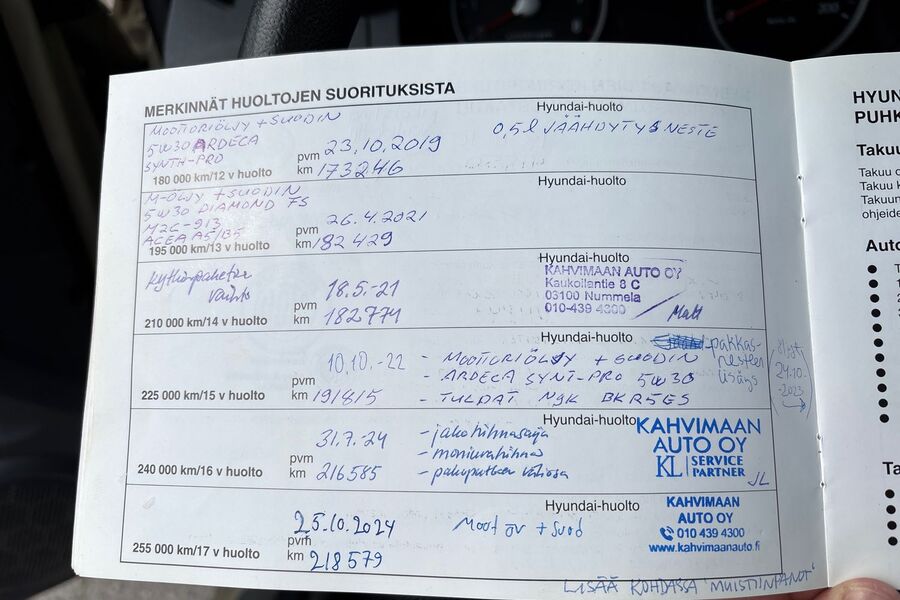 MERKINNÄT HUOLTOJEN SUORITUKSISTA
Hyundai-huolto
MOOTTORIÖLJY + SUODIN
5W30 ARDECA
SYNTH-PRO
0,5 l JÄÄHDYTYSNESTE
pvm 23.10.2019
km 173246
180 000 km/12 v huolto
Hyundai-huolto
M-ÖLJY + SUODIN
5W30 DIAMOND FS
M2C-913
ACEA A5/B5
pvm 26.4.2021
km 182429
195 000 km/13 v huolto
Hyundai-huolto
kytkinpaketin
vaihto
pvm 18.5.-21
km 182771
KAHVIMAAN AUTO OY
Kaukoilantie 8 C
03100 Nummela
010-439 4300
210 000 km/14 v huolto
Hyundai-huolto
pakkas-
nesteen
lisäys
pvm 10.10.-22
km 191815
- MOOTTORIÖLJY + SUODIN
- ARDECA SYNT-PRO 5W30
- TULPAT NGK BKR5ES
24.10.
2023
225 000 km/15 v huolto
Hyundai-huolto
pvm 31.7.-24
km 216585
- jakohihnasarja
- moniurahihna
- pakoputken
KAHVIMAAN
AUTO OY
KL SERVICE
PARTNER
JL
240 000 km/16 v huolto
Hyundai-huolto
pvm 25.10.2024
km 218579
Moot öv + suod
KAHVIMAAN
AUTO OY
010 439 4300
www.kahvimaanauto.fi
255 000 km/17 v huolto
LISÄÄ KOHDASSA "MUISTIINPANOT"
HYUN
PUHK
Takuu
Takuu o
Takuu k
Takuun
ohjeide
Auto
Ta